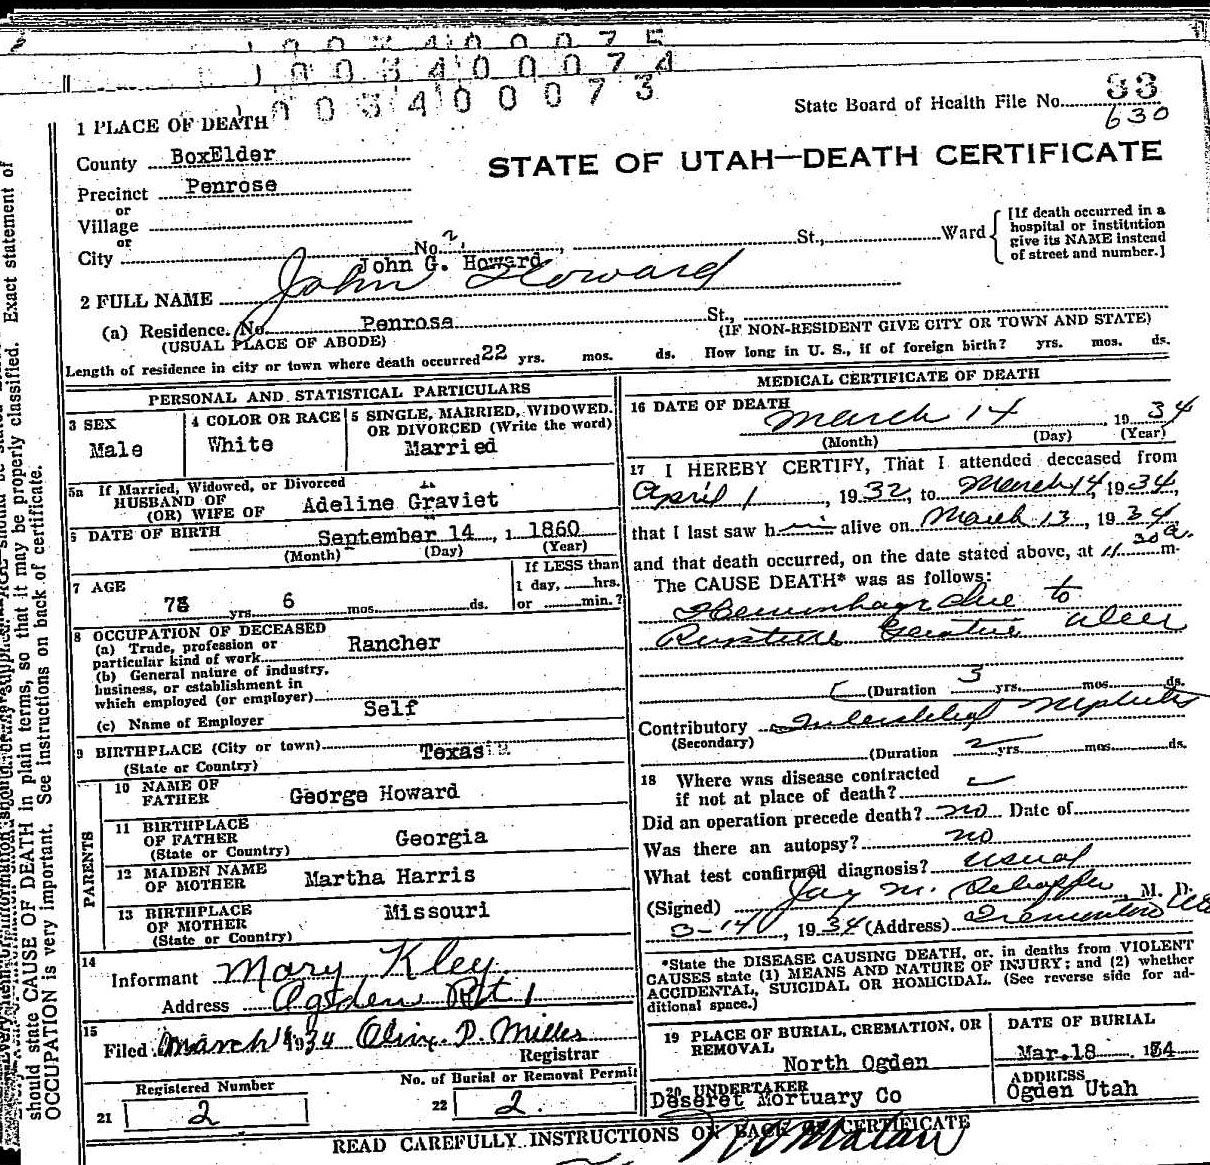 1003400075
1003400074
003400073
State Board of Health File No. 33
630
1 PLACE OF DEATH
County BoxElder
STATE OF UTAH—DEATH CERTIFICATE
Precinct Penrose
or
Village
or
City No. 2, St., Ward
[If death occurred in a hospital or institution give its NAME instead of street and number.]
John G. Howard
2 FULL NAME John Howard
(a) Residence. No. Penrose St.,
(USUAL PLACE OF ABODE) (IF NON-RESIDENT GIVE CITY OR TOWN AND STATE)
Length of residence in city or town where death occurred 22 yrs. mos. ds. How long in U. S., if of foreign birth? yrs. mos. ds.
PERSONAL AND STATISTICAL PARTICULARS
3 SEX
Male
4 COLOR OR RACE
White
5 SINGLE, MARRIED, WIDOWED. OR DIVORCED (Write the word)
Married
5a If Married, Widowed, or Divorced
HUSBAND OF
(OR) WIFE OF Adeline Graviet
6 DATE OF BIRTH September 14, 1 1860
(Month) (Day) (Year)
7 AGE
yrs. 6 mos. ds.
If LESS than
1 day, hrs.
or min.?
8 OCCUPATION OF DECEASED
(a) Trade, profession or
particular kind of work Rancher
(b) General nature of industry,
business, or establishment in
which employed (or employer)
(c) Name of Employer Self
9 BIRTHPLACE (City or town) Texas
(State or Country)
PARENTS
10 NAME OF
FATHER George Howard
11 BIRTHPLACE
OF FATHER Georgia
(State or Country)
12 MAIDEN NAME
OF MOTHER Martha Harris
13 BIRTHPLACE
OF MOTHER Missouri
(State or Country)
14
Informant Mary Kley
Address Ogden Rt 1
15
Filed March 1934 Oliver D. Miller
Registrar
Registered Number
21 2
No. of Burial or Removal Permit
22 2.
MEDICAL CERTIFICATE OF DEATH
16 DATE OF DEATH
March 14, 1934
(Month) (Day) (Year)
17 I HEREBY CERTIFY, That I attended deceased from
April 1, 1932, to March 14, 1934,
that I last saw him alive on March 13, 1934
and that death occurred, on the date stated above, at 11.30 a. m.
The CAUSE DEATH* was as follows:
Hemorrhage due to
Gastric Ulcer
(Duration 3 yrs. mos. ds.
Contributory Interstitial Nephritis
(Secondary)
(Duration 2 yrs. mos. ds.
18 Where was disease contracted
if not at place of death?
Did an operation precede death? no Date of
Was there an autopsy? no
What test confirmed diagnosis? usual
(Signed) Jay M. Schaffer M. D.
3-14, 1934 (Address) Tremonton
*State the DISEASE CAUSING DEATH, or, in deaths from VIOLENT
CAUSES state (1) MEANS AND NATURE OF INJURY; and (2) whether
ACCIDENTAL, SUICIDAL OR HOMICIDAL. (See reverse side for ad-
ditional space.)
19 PLACE OF BURIAL, CREMATION, OR
REMOVAL
North Ogden
DATE OF BURIAL
Mar. 18 34
20 UNDERTAKER
Deseret Mortuary Co
ADDRESS
Ogden Utah
READ CAREFULLY INSTRUCTIONS ON BACK OF CERTIFICATE
Exact statement of
should state CAUSE OF DEATH in plain terms, so that it may be properly classified.
OCCUPATION is very important. See instructions on back of certificate.